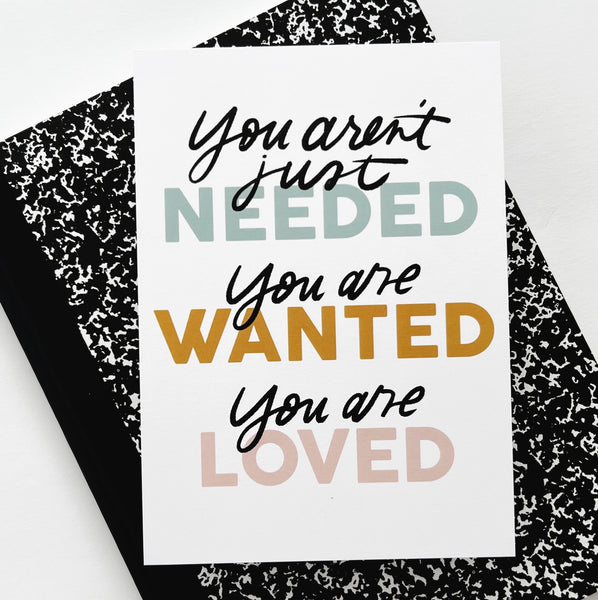 You aren't
just
NEEDED
You are
WANTED
You are
LOVED